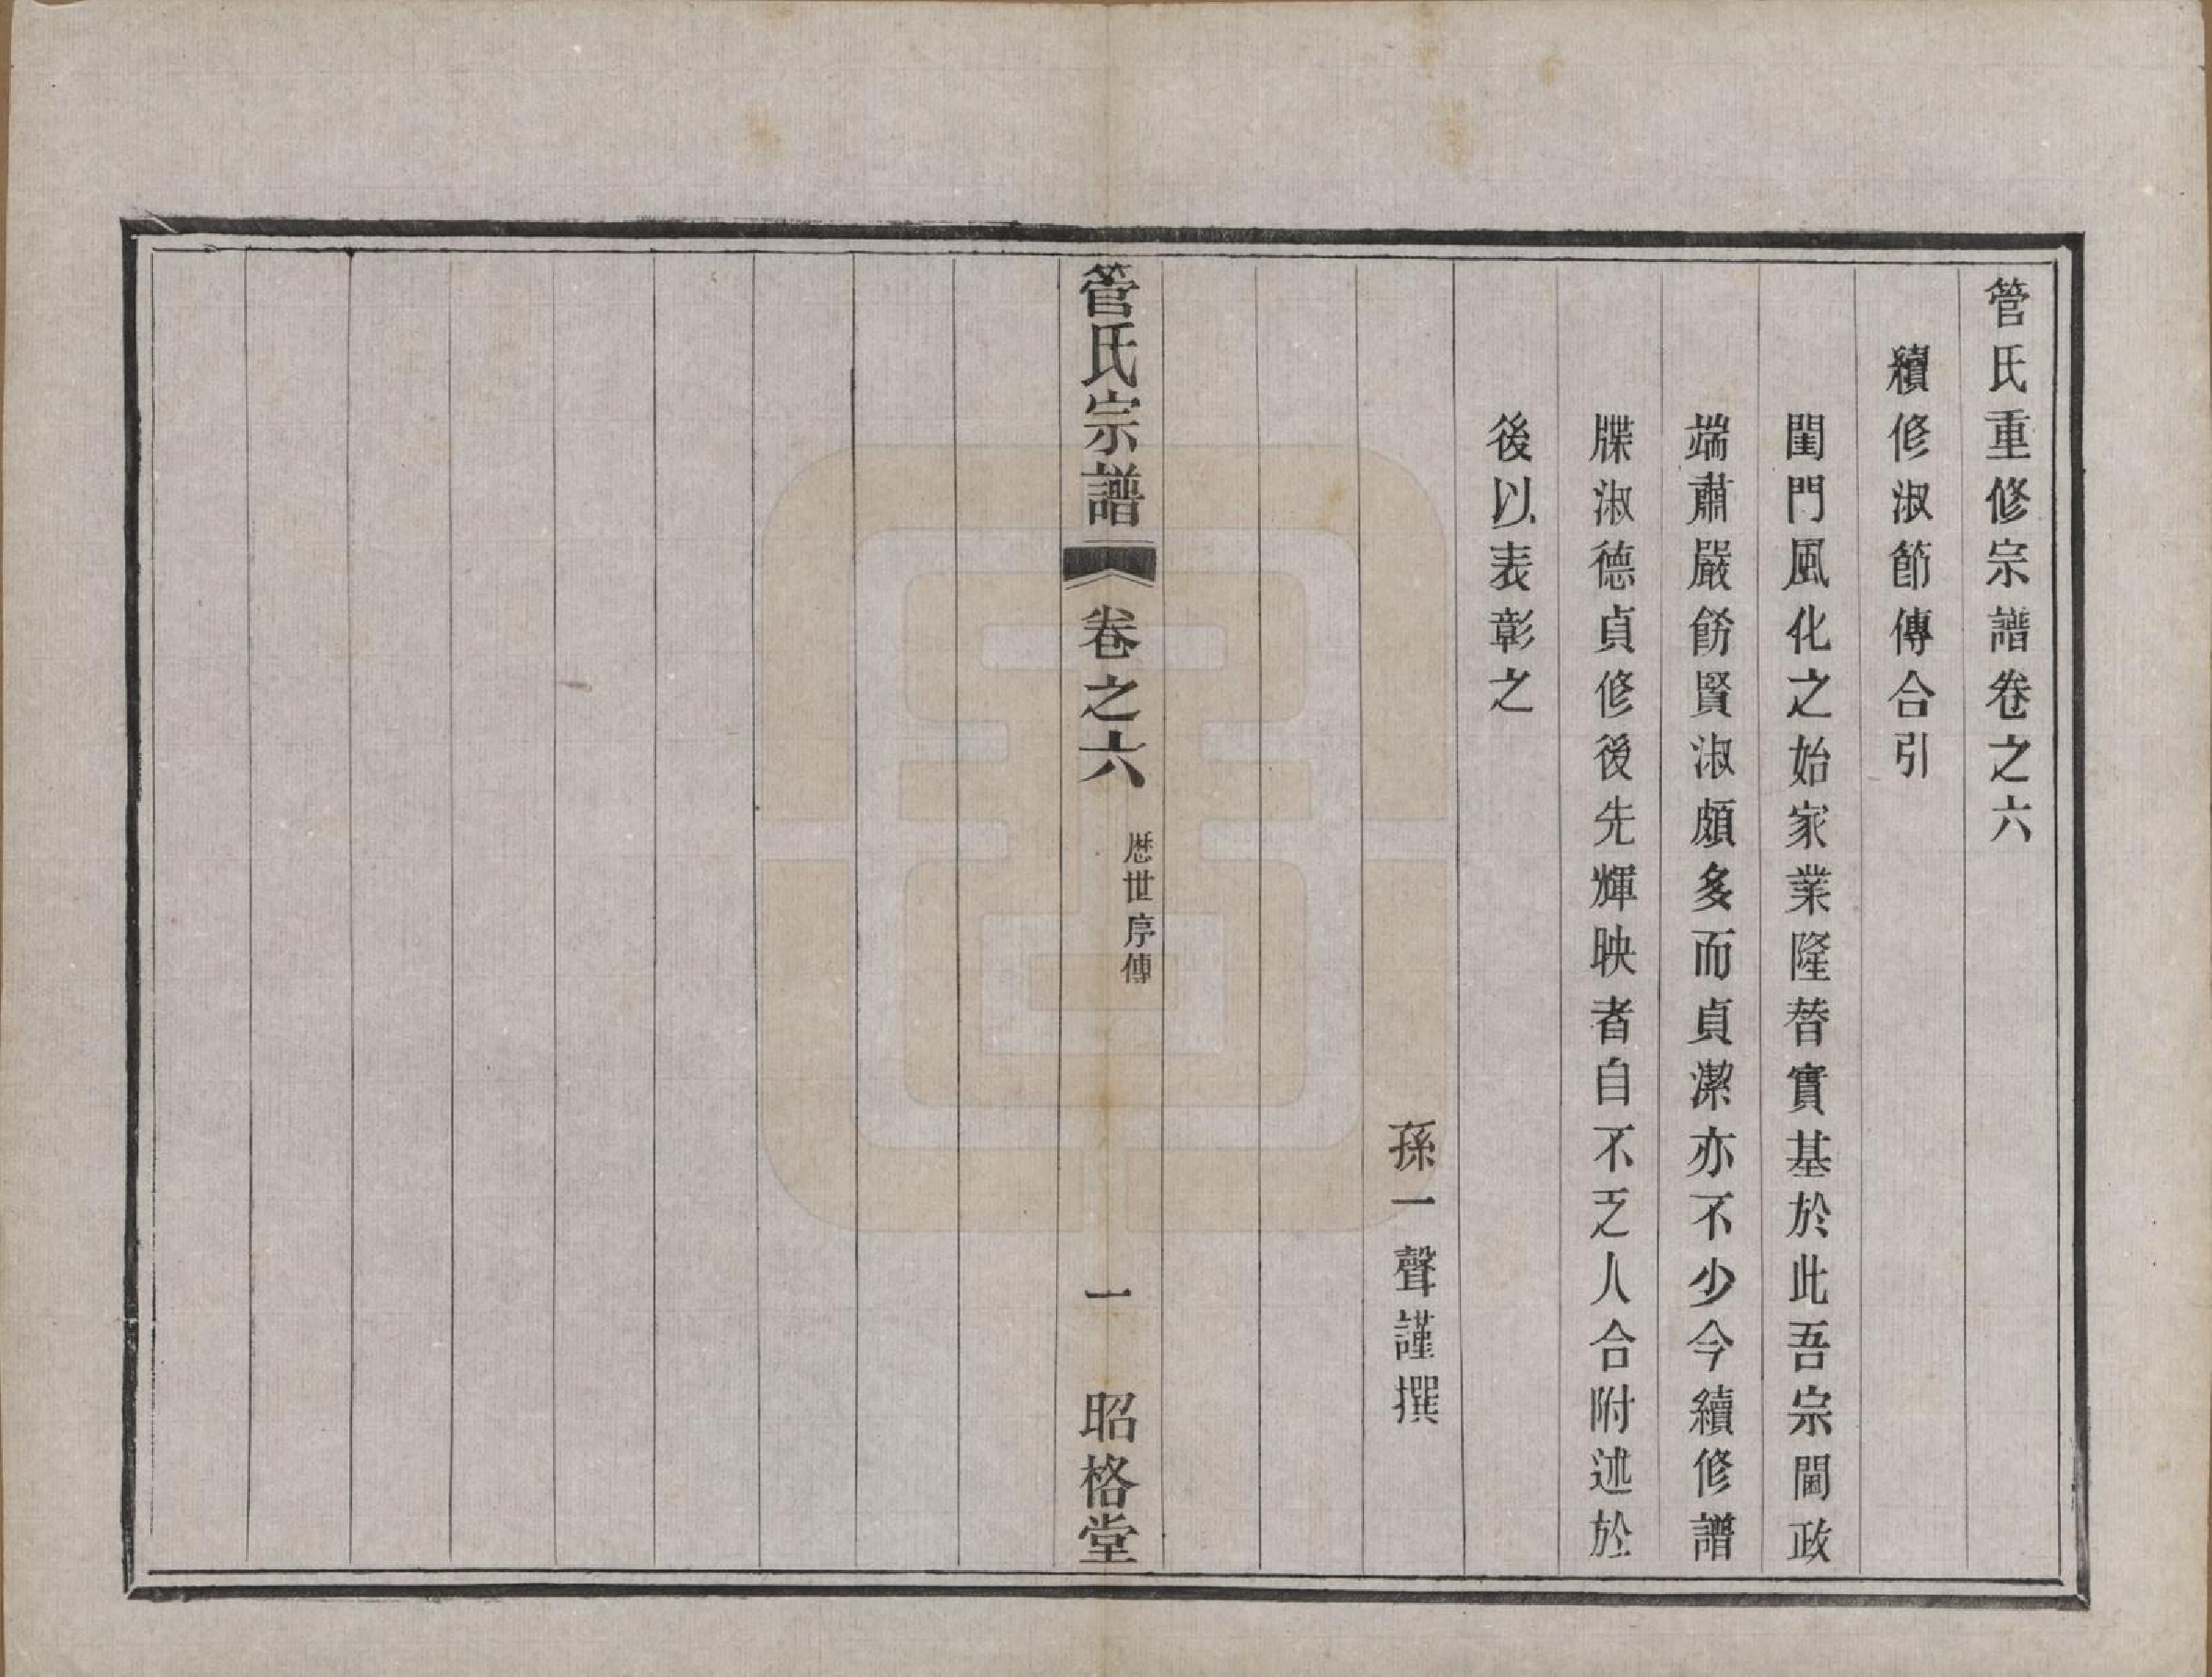 管氏重修宗譜卷之六
續修淑節傳合引
閨門風化之始家業隆替實基於此吾宗閫政
端肅嚴飭賢淑頗多而貞潔亦不少今續修譜
牒淑德貞修後先輝映者自不乏人合附述於
後以表彰之
孫一聲謹撰
管氏宗譜 卷之六 歴世序傳 一 昭格堂